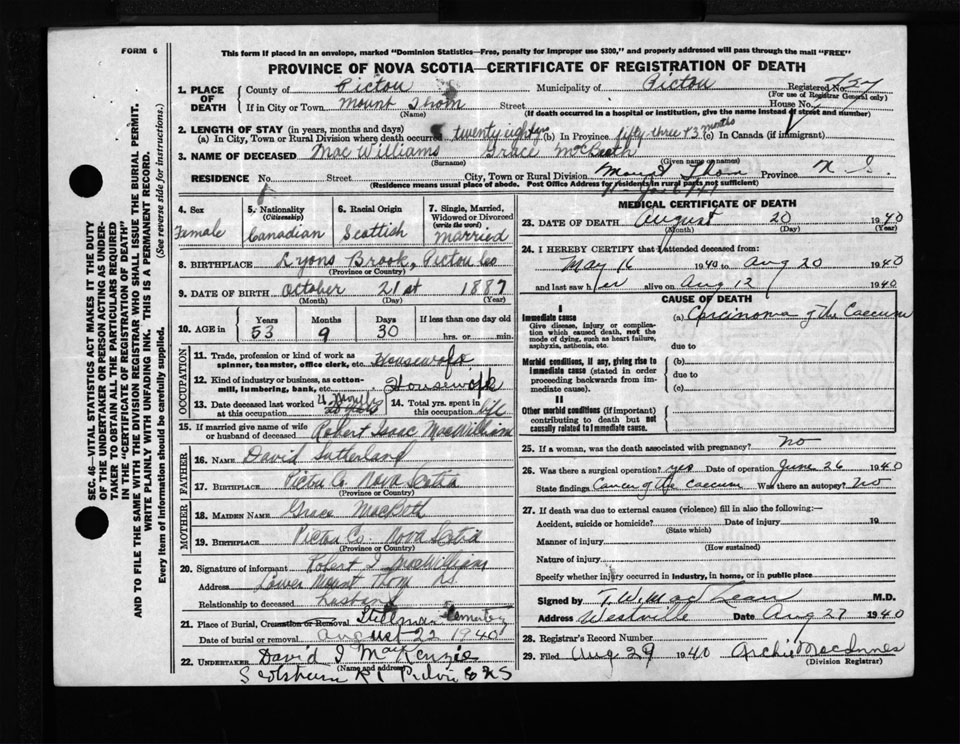 FORM 6
This form if placed in an envelope, marked "Dominion Statistics—Free, penalty for improper use $300," and properly addressed will pass through the mail "FREE"
PROVINCE OF NOVA SCOTIA—CERTIFICATE OF REGISTRATION OF DEATH
1. PLACE OF DEATH County of Pictou Municipality of Pictou Registered No.
(For use of Registrar General only)
If in City or Town Mount Thom Street House No.
(Name) (If death occurred in a hospital or institution, give the name instead of street and number)
2. LENGTH OF STAY (in years, months and days)
(a) In City, Town or Rural Division where death occurred twenty eight yrs (b) In Province fifty three & 3 months (c) In Canada (if immigrant)
3. NAME OF DECEASED MacWilliams Grace McBeath
(Surname) (Given name or names)
RESIDENCE No. Street City, Town or Rural Division Mount Thom Province N. S.
(Residence means usual place of abode. Post Office Address for residents in rural parts not sufficient)
4. Sex Female
5. Nationality (Citizenship) Canadian
6. Racial Origin Scottish
7. Single, Married, Widowed or Divorced (write the word) Married
8. BIRTHPLACE Lyons Brook, Pictou Co
(Province or Country)
9. DATE OF BIRTH October 21st 1887
(Month) (Day) (Year)
10. AGE in Years 53 Months 9 Days 30 If less than one day old hrs. or min.
OCCUPATION
11. Trade, profession or kind of work as spinner, teamster, office clerk, etc. Housewife
12. Kind of industry or business, as cotton-mill, lumbering, bank, etc. Housework
13. Date deceased last worked at this occupation 4 Months
14. Total yrs. spent in this occupation life
15. If married give name of wife or husband of deceased Robert Isaac MacWilliam
FATHER
16. NAME David Sutherland
17. BIRTHPLACE Pictou Co Nova Scotia
(Province or Country)
MOTHER
18. MAIDEN NAME Grace MacBeth
19. BIRTHPLACE Pictou Co. Nova Scotia
(Province or Country)
20. Signature of informant Robert I MacWilliam
Address Lower Mount Thom N.S.
Relationship to deceased husband
21. Place of Burial, Cremation or Removal Stillman Cemetery
Date of burial or removal August 22 1940
22. UNDERTAKER David I MacKenzie
(Name and address)
Scotsburn R1 Pictou Co NS
MEDICAL CERTIFICATE OF DEATH
23. DATE OF DEATH August 20 1940
(Month) (Day) (Year)
24. I HEREBY CERTIFY that I attended deceased from:
May 16 1940 to Aug 20 1940
and last saw her alive on Aug 12 1940
CAUSE OF DEATH
I
Immediate cause
Give disease, injury or complication which caused death, not the mode of dying, such as heart failure, asphyxia, asthenia, etc.
(a) Carcinoma of the Caecum
due to
Morbid conditions, if any, giving rise to immediate cause (stated in order proceeding backwards from immediate cause).
(b)
due to
(c)
II
Other morbid conditions (if important) contributing to death but not causally related to immediate cause.
25. If a woman, was the death associated with pregnancy? no
26. Was there a surgical operation? yes Date of operation June 26 1940
State findings Cancer of the Caecum Was there an autopsy? No
27. If death was due to external causes (violence) fill in also the following:—
Accident, suicide or homicide? Date of injury 19
(State which)
Manner of injury
(How sustained)
Nature of injury
Specify whether injury occurred in industry, in home, or in public place
Signed by T. W. MacLean M.D.
Address Westville Date Aug 27 1940
28. Registrar's Record Number
29. Filed Aug 29 1940 Archie MacInnes
(Division Registrar)
SEC. 46—VITAL STATISTICS ACT MAKES IT THE DUTY
OF THE UNDERTAKER OR PERSON ACTING AS UNDER-
TAKER TO OBTAIN ALL THE PARTICULARS REQUIRED
IN THE "CERTIFICATE OF REGISTRATION OF DEATH"
AND TO FILE THE SAME WITH THE DIVISION REGISTRAR WHO SHALL ISSUE THE BURIAL PERMIT.
WRITE PLAINLY WITH UNFADING INK. THIS IS A PERMANENT RECORD.
Every item of information should be carefully supplied. (See reverse side for instructions.)